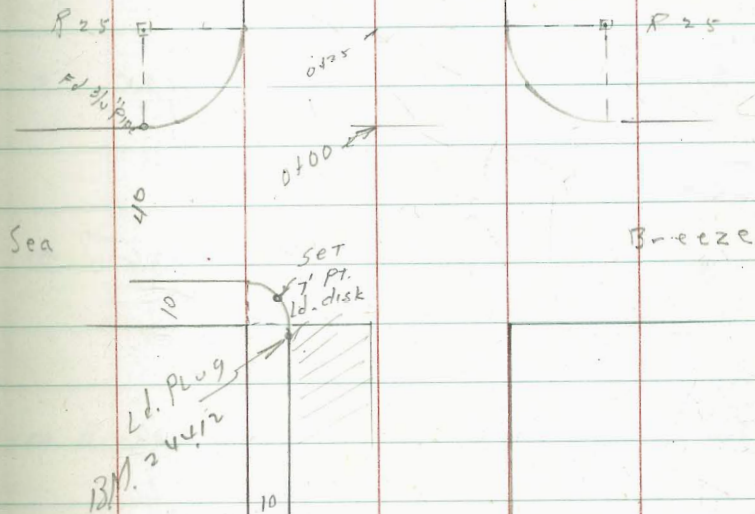 R 25
R 25
0+25
Fd 3/4" Pipe
0+00
40
Sea
Breeze
SET
7' PT.
Ld. disk
10
Ld. PLUG
BM. 2 44.12
10